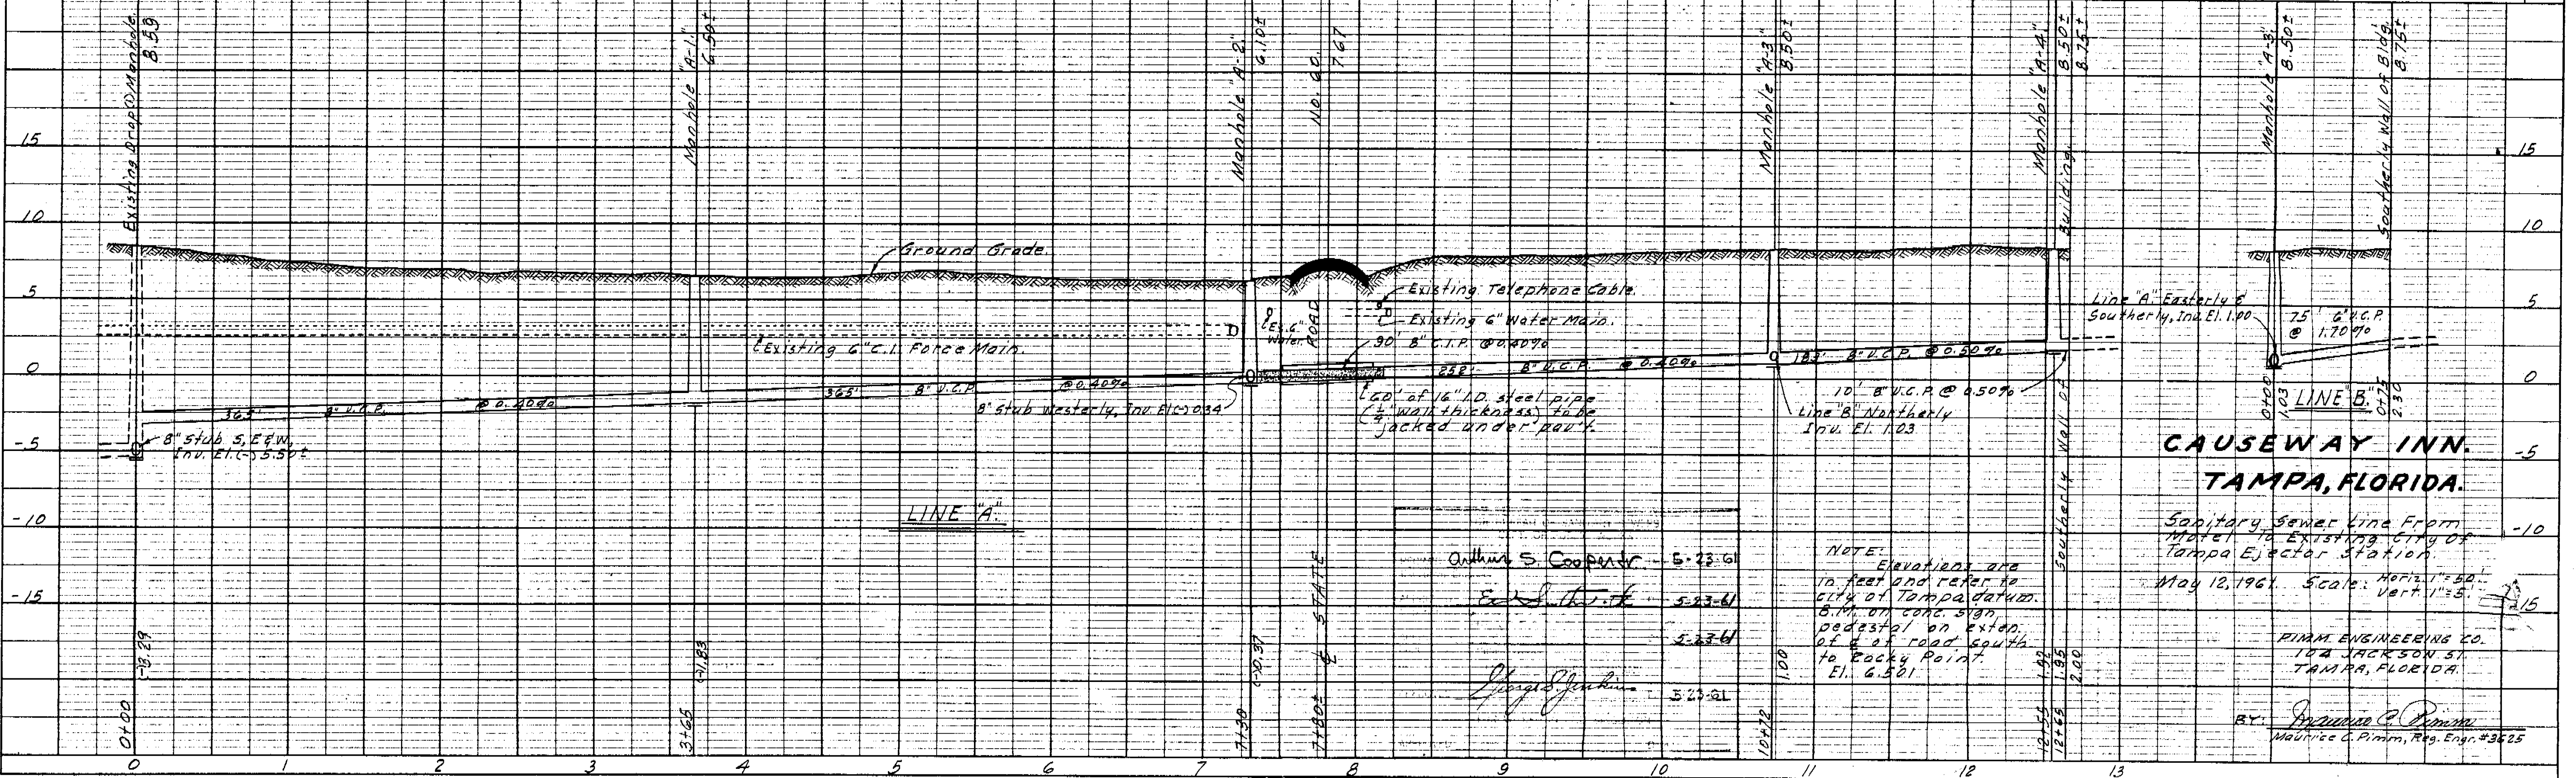 Existing Drop Manhole
8.59
Manhole "A-1."
6.50±
Manhole "A-2."
6.10±
NO. 60.
7.67
Manhole "A-3"
8.50±
Manhole "A-4."
8.50±
8.75±
Manhole "A-3"
8.50±
Southerly Wall of Bldg.
8.75±
15
15
10
10
5
5
0
0
-5
-5
-10
-10
-15
-15
Ground Grade.
Existing 6" C.I. Force Main.
Ex. 6"
Water
ROAD
Existing Telephone Cable.
Existing 6" Water Main.
90' 8" C.I.P. @ 0.40%
365' 8" V.C.P. @ 0.40%
365' 8" V.C.P. @ 0.40%
252' 8" V.C.P. @ 0.40%
183' 8" V.C.P. @ 0.50%
10' 8" V.C.P. @ 0.50%
8" Stub S, E & W,
Inv. El. (-) 5.50±
8" Stub Westerly, Inv. El. (-) 0.34
60' of 16" I.D. steel pipe
(¼" wall thickness) to be
jacked under pav't.
Line "B" Northerly
Inv. El. 1.03
Line "A" Easterly &
Southerly, Inv. El. 1.00
75' 6" V.C.P.
@ 1.70%
LINE "A."
LINE "B."
0+00
1.03
0+75
2.30
Southerly Wall of Building.
℄ STATE
CAUSEWAY INN.
TAMPA, FLORIDA.
Sanitary Sewer Line From
Motel To Existing City Of
Tampa Ejector Station.
May 12, 1961. Scale: Horiz. 1"=50'
Vert. 1"=5'
PIMM ENGINEERING CO.
104 JACKSON ST.
TAMPA, FLORIDA
BY: Maurice C. Pimm
Maurice C. Pimm, Reg. Engr. #3625
NOTE:
Elevations are
in feet and refer to
City of Tampa datum.
B.M. on conc. sign
pedestal on exten.
of ℄ of road south
to Rocky Point.
El. 6.501
Arthur S. Cooper Jr. 5-23-61
5-23-61
5-23-61
George S. Jenkins 5-23-61
(-)3.29
(-)1.83
(-)0.37
1.00
1.92
1.95
2.00
0+00
3+65
7+30
7+80±
10+72
12+55
12+65
0 1 2 3 4 5 6 7 8 9 10 11 12 13